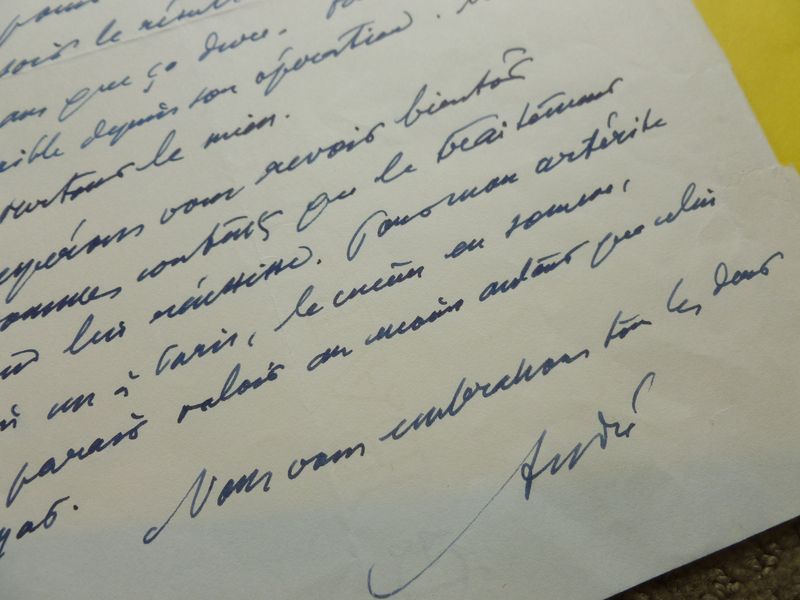 pour
soir le résul
ans que ça dure.
sible depuis son opération.
surtout le mien.
espérons vous revoir bientôt
sommes contents que le traitement
lui réussisse. Pour mon artérite
un à Paris, le même en somme,
paraît valoir au moins autant que celui
Nous vous embrassons tous les deux
André